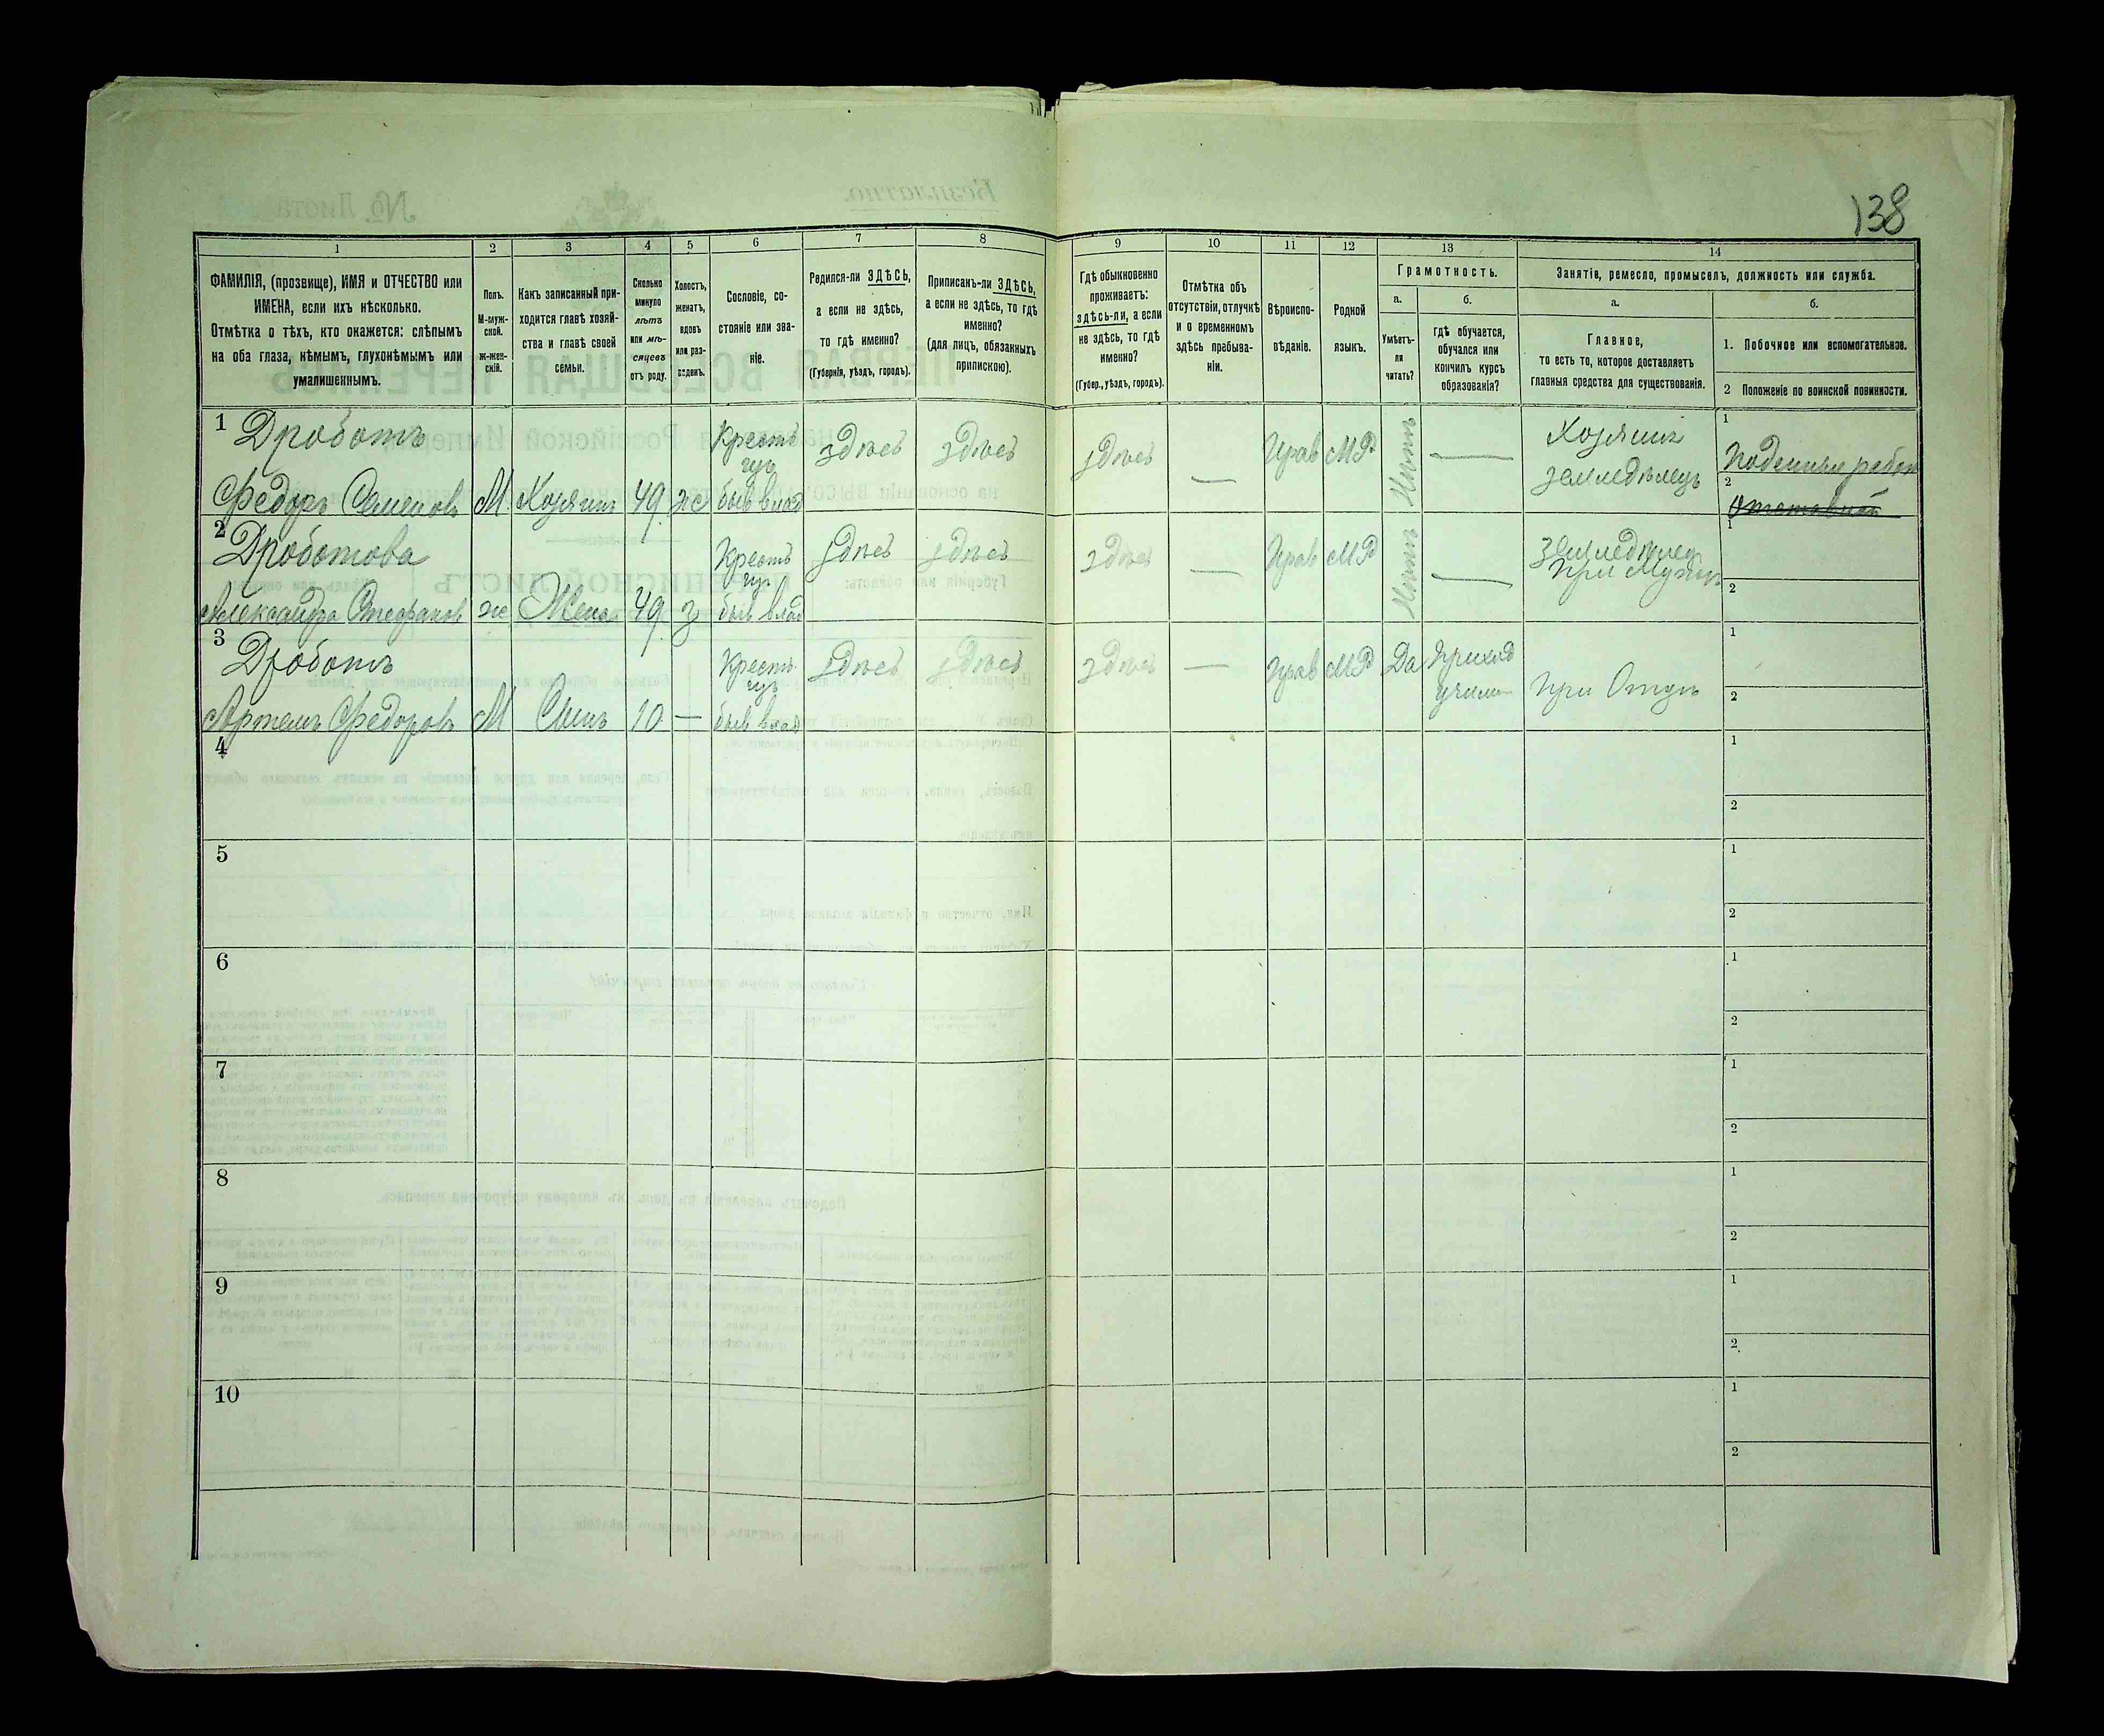 138
1
2
3
4
5
6
7
8
9
10
11
12
13
14
ФАМИЛІЯ, (прозвище), ИМЯ и ОТЧЕСТВО или
ИМЕНА, если ихъ нѣсколько.
Отмѣтка о тѣхъ, кто окажется: слѣпымъ
на оба глаза, нѣмымъ, глухонѣмымъ или
умалишеннымъ.
Полъ.
М-муж-
ской.
Ж-жен-
скій.
Какъ записанный при-
ходится главѣ хозяй-
ства и главѣ своей
семьи.
Сколько
минуло
лѣтъ
или мѣ-
сяцевъ
отъ роду.
Холостъ,
женатъ,
вдовъ
или раз-
веденъ.
Сословіе, со-
стояніе или зва-
ніе.
Родился-ли ЗДѢСЬ,
а если не здѣсь,
то гдѣ именно?
(Губернія, уѣздъ, городъ).
Приписанъ-ли ЗДѢСЬ,
а если не здѣсь, то гдѣ
именно?
(для лицъ, обязанныхъ
припискою).
Гдѣ обыкновенно
проживаетъ:
здѣсь-ли, а если
не здѣсь, то гдѣ
именно?
(Губер., уѣздъ, городъ).
Отмѣтка объ
отсутствіи, отлучкѣ
и о временномъ
здѣсь пребыва-
ніи.
Вѣроиспо-
вѣданіе.
Родной
языкъ.
Грамотность.
а.
Умѣетъ-
ли
читать?
б.
гдѣ обучается,
обучался или
кончилъ курсъ
образованія?
Занятіе, ремесло, промыселъ, должность или служба.
а.
Главное,
то есть то, которое доставляетъ
главныя средства для существованія.
б.
1. Побочное или вспомогательное.
2 Положеніе по воинской повинности.
1 Дроботъ
Федоръ Семеновъ
М
Хозяинъ
49
ж
Крестъ
бывъ влад
здѣсь
здѣсь
здѣсь
—
Прав
МР
Нѣтъ
—
Хозяинъ
земледѣлецъ
1
Поденныя
2
Отставной
2 Дроботова
Александра Стефанов
ж
Жена
49
з
Крестъ
бывъ влад
здѣсь
здѣсь
здѣсь
—
Прав
МР
Нѣтъ
—
земледѣлец
при Мужѣ
1
2
3 Дроботъ
Артемъ Федоровъ
М
Сынъ
10
—
Крестъ
бывъ влад
здѣсь
здѣсь
здѣсь
—
Прав
МР
Да
приход
учили
при Отцѣ
1
2
4
1
2
5
1
2
6
1
2
7
1
2
8
1
2
9
1
2
10
1
2